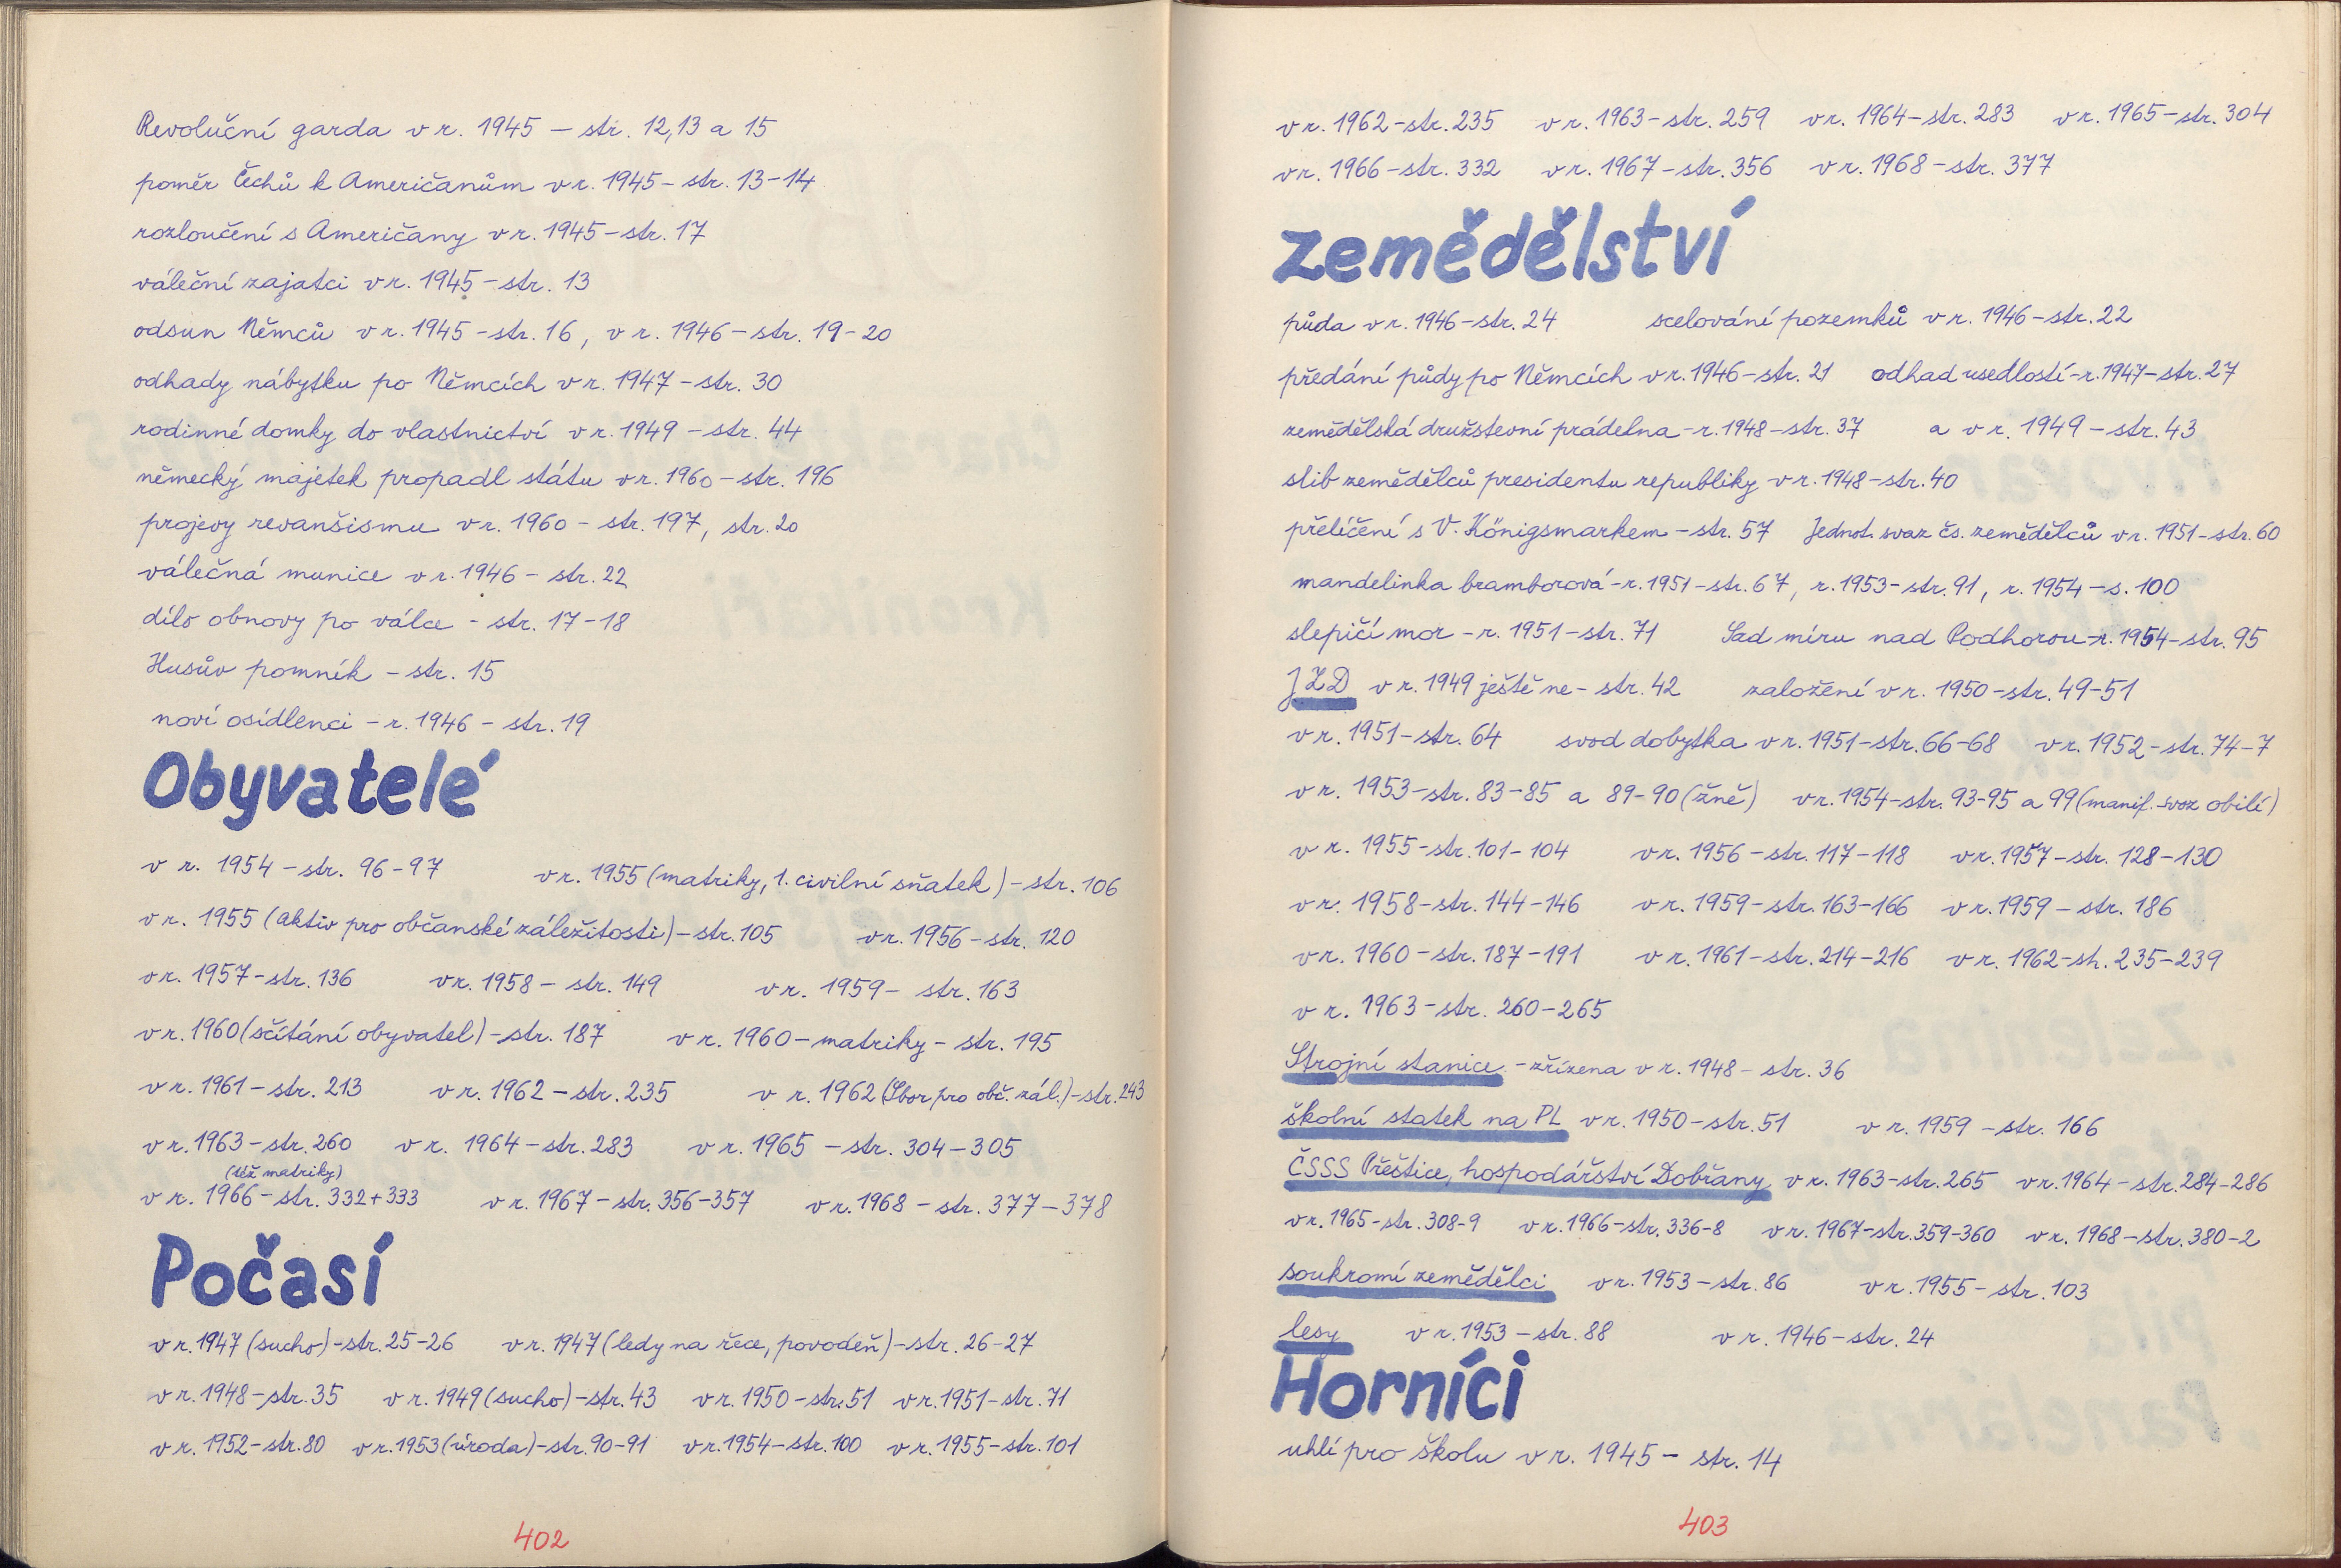 Revoluční garda v r. 1945 – str. 12,13 a 15
poměr Čechů k Američanům v r. 1945 – str. 13–14
rozloučení s Američany v r. 1945 – str. 17
váleční zajatci v r. 1945 – str. 13
odsun Němců v r. 1945 – str. 16, v r. 1946 – str. 19–20
odhady nábytku po Němcích v r. 1947 – str. 30
rodinné domky do vlastnictví v r. 1949 – str. 44
německý majetek propadl státu v r. 1960 – str. 196
projevy revanšismu v r. 1960 – str. 197, str. 20
válečná munice v r. 1946 – str. 22
dílo obnovy po válce – str. 17–18
Husův pomník – str. 15
noví osídlenci – r. 1946 – str. 19
Obyvatelé
v r. 1954 – str. 96–97 v r. 1955 (matriky, 1. civilní sňatek) – str. 106
v r. 1955 (aktiv pro občanské záležitosti) – str. 105 v r. 1956 – str. 120
v r. 1957 – str. 136 v r. 1958 – str. 149 v r. 1959 – str. 163
v r. 1960 (sčítání obyvatel) – str. 187 v r. 1960 – matriky – str. 195
v r. 1961 – str. 213 v r. 1962 – str. 235 v r. 1962 (Sbor pro obč. zál.) – str. 243
v r. 1963 – str. 260 v r. 1964 – str. 283 v r. 1965 – str. 304–305
(též matriky)
v r. 1966 – str. 332+333 v r. 1967 – str. 356–357 v r. 1968 – str. 377–378
Počasí
v r. 1947 (sucho) – str. 25–26 v r. 1947 (ledy na řece, povodeň) – str. 26–27
v r. 1948 – str. 35 v r. 1949 (sucho) – str. 43 v r. 1950 – str. 51 v r. 1951 – str. 71
v r. 1952 – str. 80 v r. 1953 (úroda) – str. 90–91 v r. 1954 – str. 100 v r. 1955 – str. 101
402
v r. 1962 – str. 235 v r. 1963 – str. 259 v r. 1964 – str. 283 v r. 1965 – str. 304
v r. 1966 – str. 332 v r. 1967 – str. 356 v r. 1968 – str. 377
zemědělství
půda v r. 1946 – str. 24 scelování pozemků v r. 1946 – str. 22
předání půdy po Němcích v r. 1946 – str. 21 odhad usedlostí – r. 1947 – str. 27
zemědělská družstevní prádelna – r. 1948 – str. 37 a v r. 1949 – str. 43
slib zemědělců presidentu republiky v r. 1948 – str. 40
přelíčení s V. Königsmarkem – str. 57 Jednot. svaz čs. zemědělců v r. 1951 – str. 60
mandelinka bramborová – r. 1951 – str. 67, r. 1953 – str. 91, r. 1954 – s. 100
slepičí mor – r. 1951 – str. 71 Sad míru nad Podhorou – r. 1954 – str. 95
JZD v r. 1949 ještě ne – str. 42 založení v r. 1950 – str. 49–51
v r. 1951 – str. 64 svod dobytka v r. 1951 – str. 66–68 v r. 1952 – str. 74–7
v r. 1953 – str. 83–85 a 89–90 (žně) v r. 1954 – str. 93–95 a 99 (manif. svoz obilí)
v r. 1955 – str. 101–104 v r. 1956 – str. 117–118 v r. 1957 – str. 128–130
v r. 1958 – str. 144–146 v r. 1959 – str. 163–166 v r. 1959 – str. 186
v r. 1960 – str. 187–191 v r. 1961 – str. 214–216 v r. 1962 – str. 235–239
v r. 1963 – str. 260–265
Strojní stanice – zřízena v r. 1948 – str. 36
školní statek na PL v r. 1950 – str. 51 v r. 1959 – str. 166
ČSSS Přeštice, hospodářství Dobřany v r. 1963 – str. 265 v r. 1964 – str. 284–286
v r. 1965 – str. 308–9 v r. 1966 – str. 336–8 v r. 1967 – str. 359–360 v r. 1968 – str. 380–2
soukromí zemědělci v r. 1953 – str. 86 v r. 1955 – str. 103
lesy v r. 1953 – str. 88 v r. 1946 – str. 24
Horníci
uhlí pro školu v r. 1945 – str. 14
403